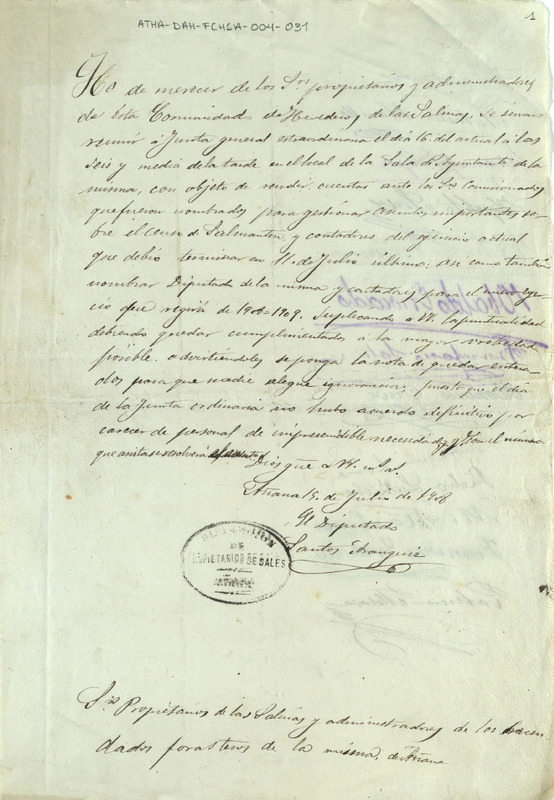 1
ATHA-DAH-FCHEA-004-031
He de merecer de los Srs propietarios y administradores
de esta Comunidad de Herederos de las Salinas, se sirvan
reunir á Junta general extraordinaria el día 16 del actual á las
seis y media de la tarde en el local de la Sala de Ayuntamto de la
misma, con objeto de rendir cuentas ante los Srs Comisionados
que fueron nombrados para gestionar asuntos importantes so-
bre el Censo de Salmantón, y contadores del ejercicio actual
que debió terminar en 11 de Julio último; asi como tambien
nombrar Diputado de la misma y contadores para el nuevo ejer-
cicio que regirá de 1908=1909. Suplicando a VV. la puntualidad
debiendo quedar cumplimentado a la mayor brevedad
posible. advirtiendoles se ponga la nota de quedar entera-
dos para que nadie alegue ignorancia; puesto que el día
de la Junta ordinaria no hubo acuerdo definitivo por
carecer de personal de imprescindible necesidad, y con el número
que asista se resolverá
Dios gue a VV. ms as.
Añana 15 de Julio de 1908
El Diputado
Santos Aranguiz
DE
PROPIETARIOS DE SALES
AÑANA
Srs Propietarios de las Salinas y administradores de los hacen
dados forasteros de la misma, de Añana